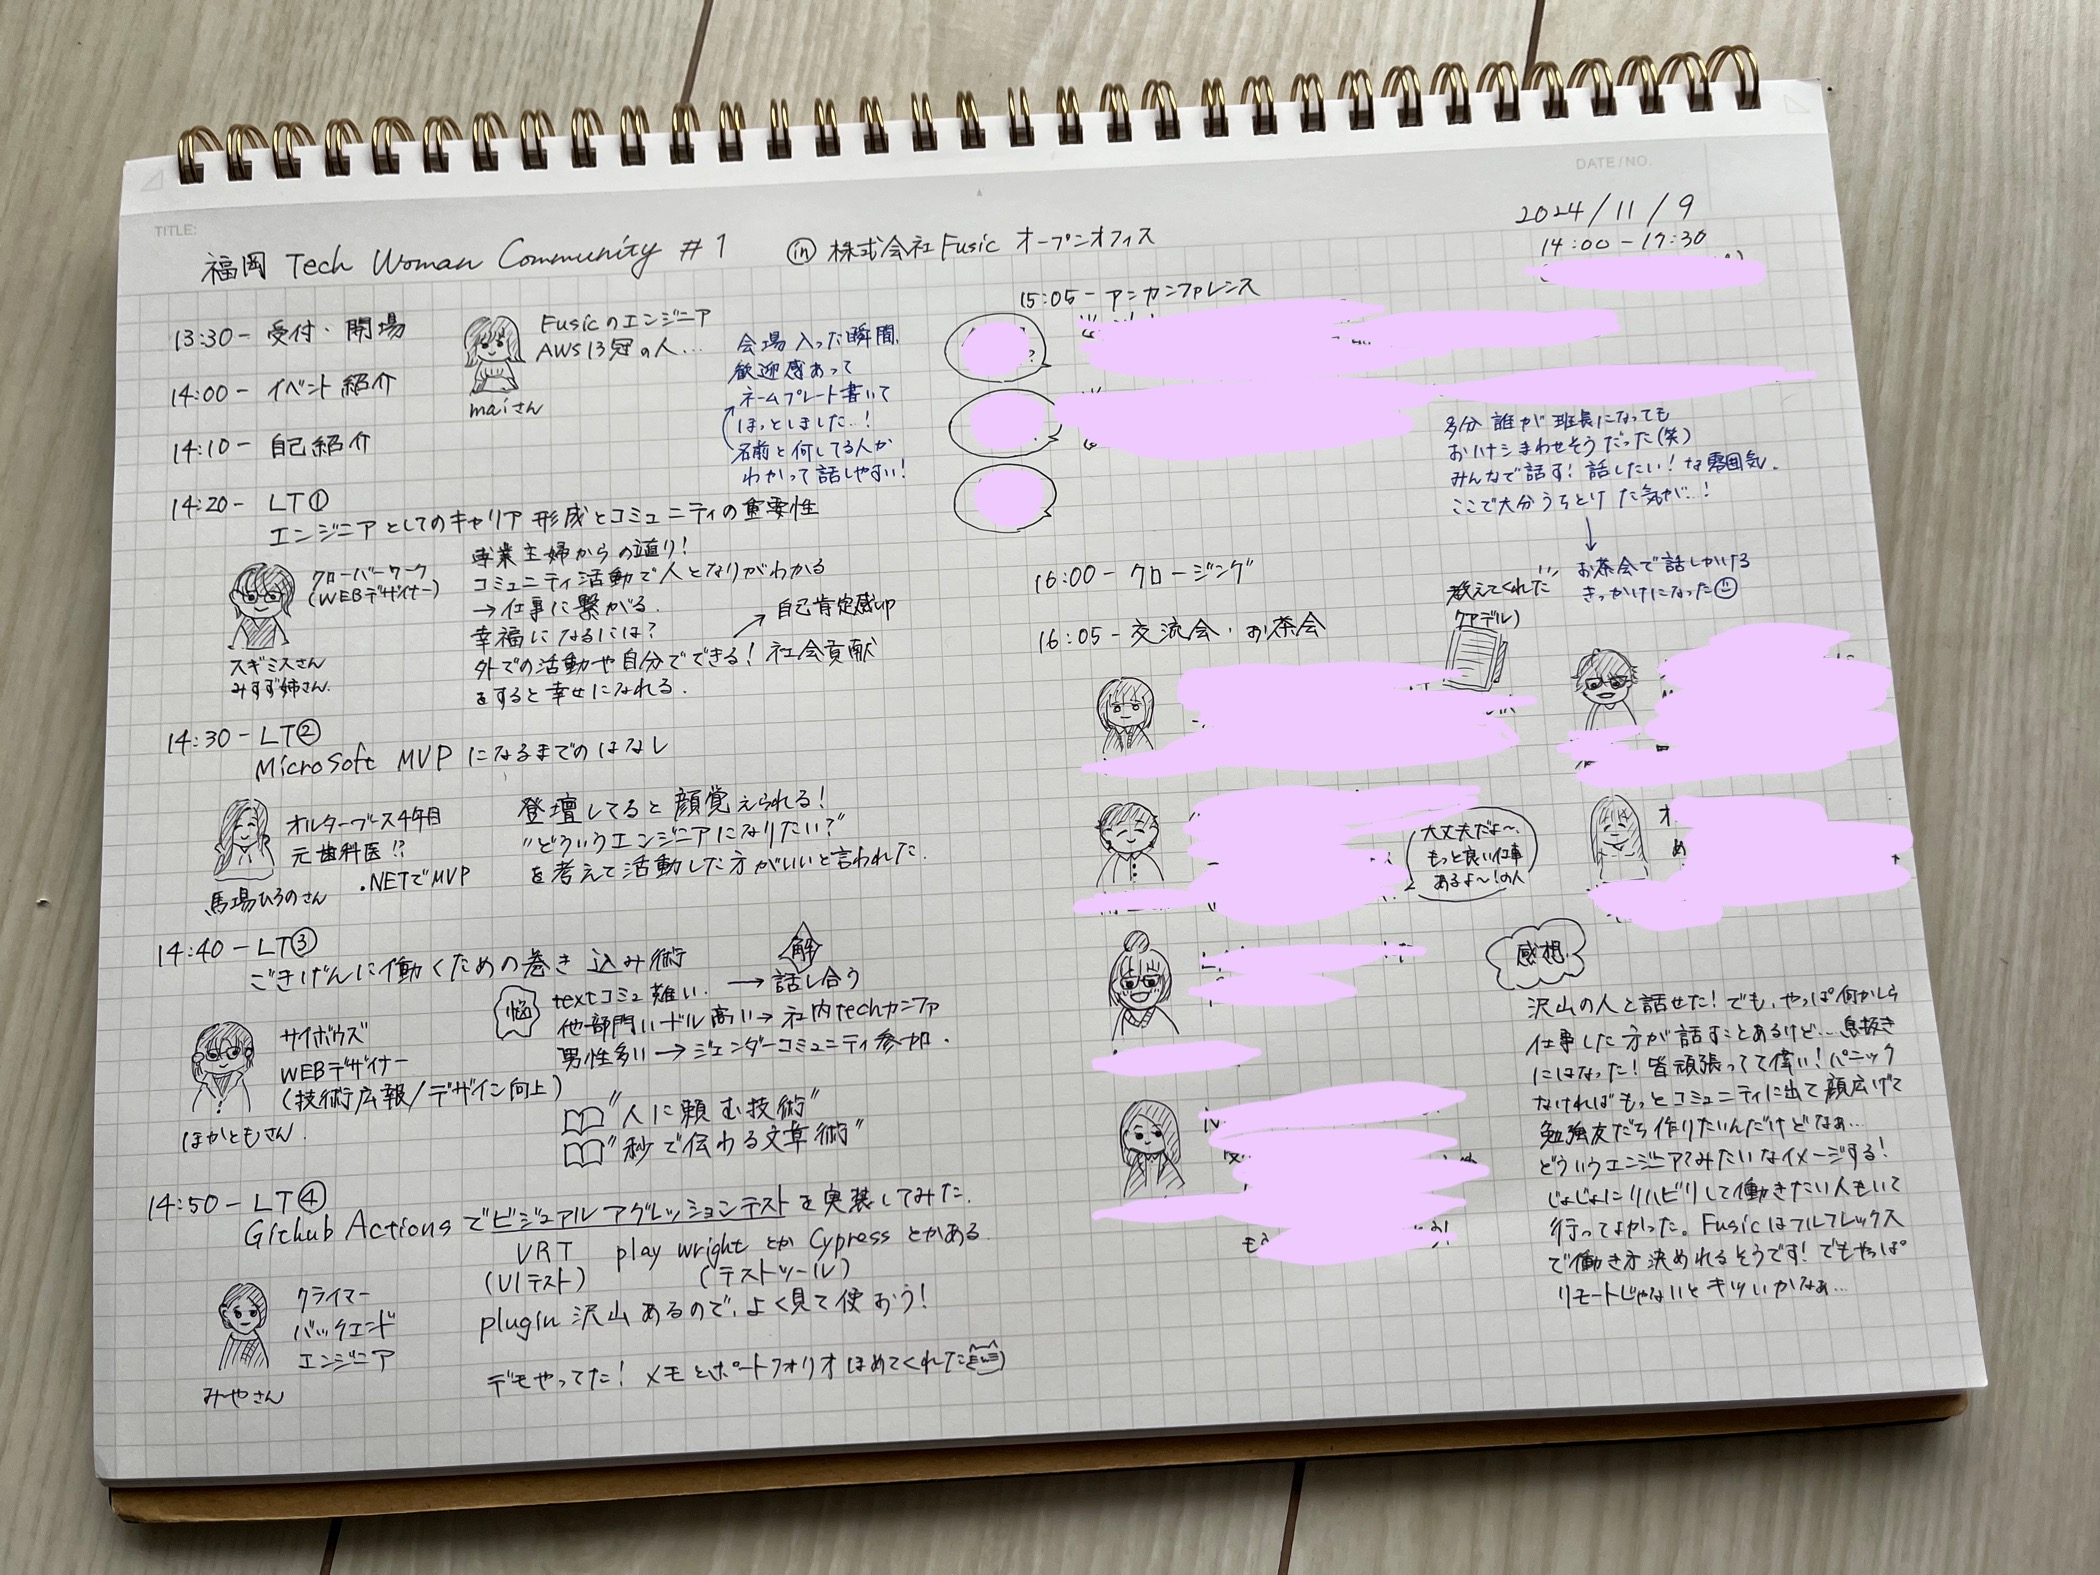 DATE/NO.
TITLE:
2024/11/9
14:00-17:30
福岡 Tech Woman Community #1 in 株式会社Fusic オープンオフィス
13:30- 受付・開場
14:00- イベント紹介
14:10- 自己紹介
Fusicのエンジニア
AWS13冠の人...
maiさん
会場入った瞬間、
歓迎感あって
ネームプレート書いて
ほっとしました...!
名前と何してる人か
わかって話しやすい!
14:20- LT①
エンジニアとしてのキャリア形成とコミュニティの重要性
クローバーワーク
(WEBデザイナー)
スギミスさん
みすず姉さん
専業主婦からの道り!
コミュニティ活動で人となりがわかる
→仕事に繋がる.
幸福になるには?
→自己肯定感up
外での活動や自分でできる!社会貢献
をすると幸せになれる.
14:30- LT②
MicroSoft MVP になるまでのはなし
オルターブース4年目
元歯科医!?
.NETでMVP
馬場ひろのさん
登壇してると顔覚えられる!
"どういうエンジニアになりたい?"
を考えて活動した方がいいと言われた.
14:40- LT③
ごきげんに働くための巻き込み術
サイボウズ
WEBデザイナー
(技術広報/デザイン向上)
ほかともさん
悩
解
textコミュ難い. → 話し合う
他部門ハードル高い→ 社内techカンファ
男性多い → ジェンダーコミュニティ参加.
"人に頼む技術"
"秒で伝わる文章術"
14:50- LT④
Github Actions でビジュアルアグレッションテストを実装してみた.
VRT play wright とか Cypress とかある.
(UIテスト) (テストツール)
plugin 沢山あるので、よく見て使おう!
クライマー
バックエンド
エンジニア
みやさん
デモやってた! メモとポートフォリオほめてくれた
15:05- アンカンファレンス
多分 誰が班長になっても
おハナシまわせそうだった(笑)
みんなで話す!話したい!な雰囲気.
ここで大分うちとけた気が...!
↓
お茶会で話しかける
きっかけになった
16:00- クロージング
16:05- 交流会・お茶会
教えてくれた
大丈夫だよ〜、
もっと良い仕事
あるよ〜!の人
感想
沢山の人と話せた!でも、やっぱ何かしら
仕事した方が話すことあるけど... 息抜き
にはなった!皆頑張ってて偉い!パニック
なければもっとコミュニティに出て顔広げて
勉強友だち作りたいんだけどなぁ...
どういうエンジニア?みたいなイメージする!
じょじょにリハビリして働きたい人もいて
行ってよかった。Fusicはフルフレックス
で働き方決めれるそうです!でもやっぱ
リモートじゃないとキツいかなぁ...